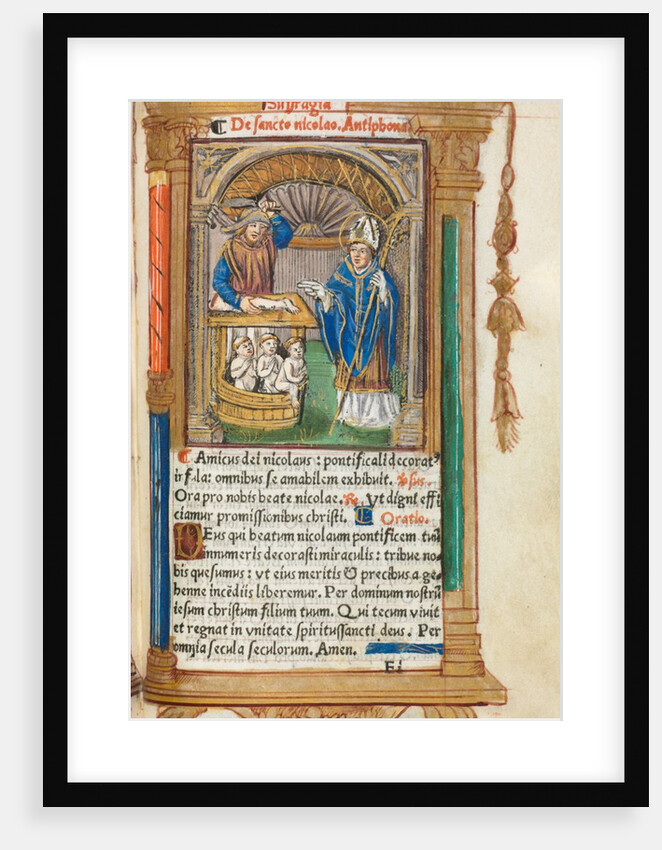 Suffragia
C De sancto nicolao. Antiphona
C Amicus dei nicolaus : pontificali decorat⁹
infula: omnibus se amabilem exhibuit. ℣sus.
Ora pro nobis beate nicolae. ℟. Vt digni effi
ciamur promissionibus christi. C Oratio.
DEus qui beatum nicolaum pontificem tuū
innumeris decorasti miraculis : tribue no-
bis quesumus : vt eius meritis & precibus a ge-
henne incēdiis liberemur. Per dominum nostrū
iesum christum filium tuum. Qui tecum viuit
et regnat in vnitate spiritussancti deus. Per
omnia secula seculorum. Amen.